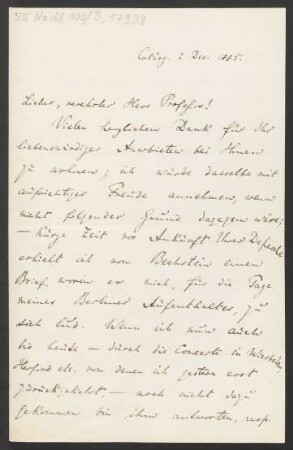 55 Nachl 100/B, 17938
Coburg. 2 Dec 1885.
Lieber, verehrter Herr Professor!
Vielen herzlichen Dank für Ihr
liebenswürdiges Anerbieten bei Ihnen
zu wohnen; ich würde dasselbe mit
aufrichtiger Freude annehmen, wenn
nicht folgender Grund dagegen wäre;
— Kurze Zeit vor Ankunft Ihrer Depesche
erhielt ich von Bechstein einen
Brief, worin er mich, für die Tage
meines Berliner Aufenthaltes, zu
sich lud. Wenn ich nun auch
bis heute — durch die Concerte in Wiesbaden,
Herford etc. von denen ich gestern erst
zurückgekehrt, — noch nicht dazu
gekommen bin ihm antworten, resp.